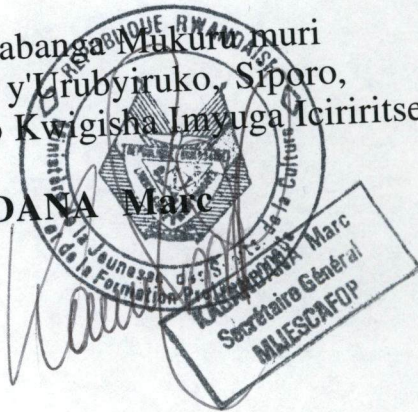 abanga Mukuru muri
y'Urubyiruko, Siporo,
Kwigisha Imyuga Iciriritse
DANA Marc
REPUBLIQUE RWANDAISE
Ministère de la Jeunesse, des Sports, de la Culture
et de la Formation Professionnelle
KABANDANA Marc
Secrétaire Général
MIJESCAFOP